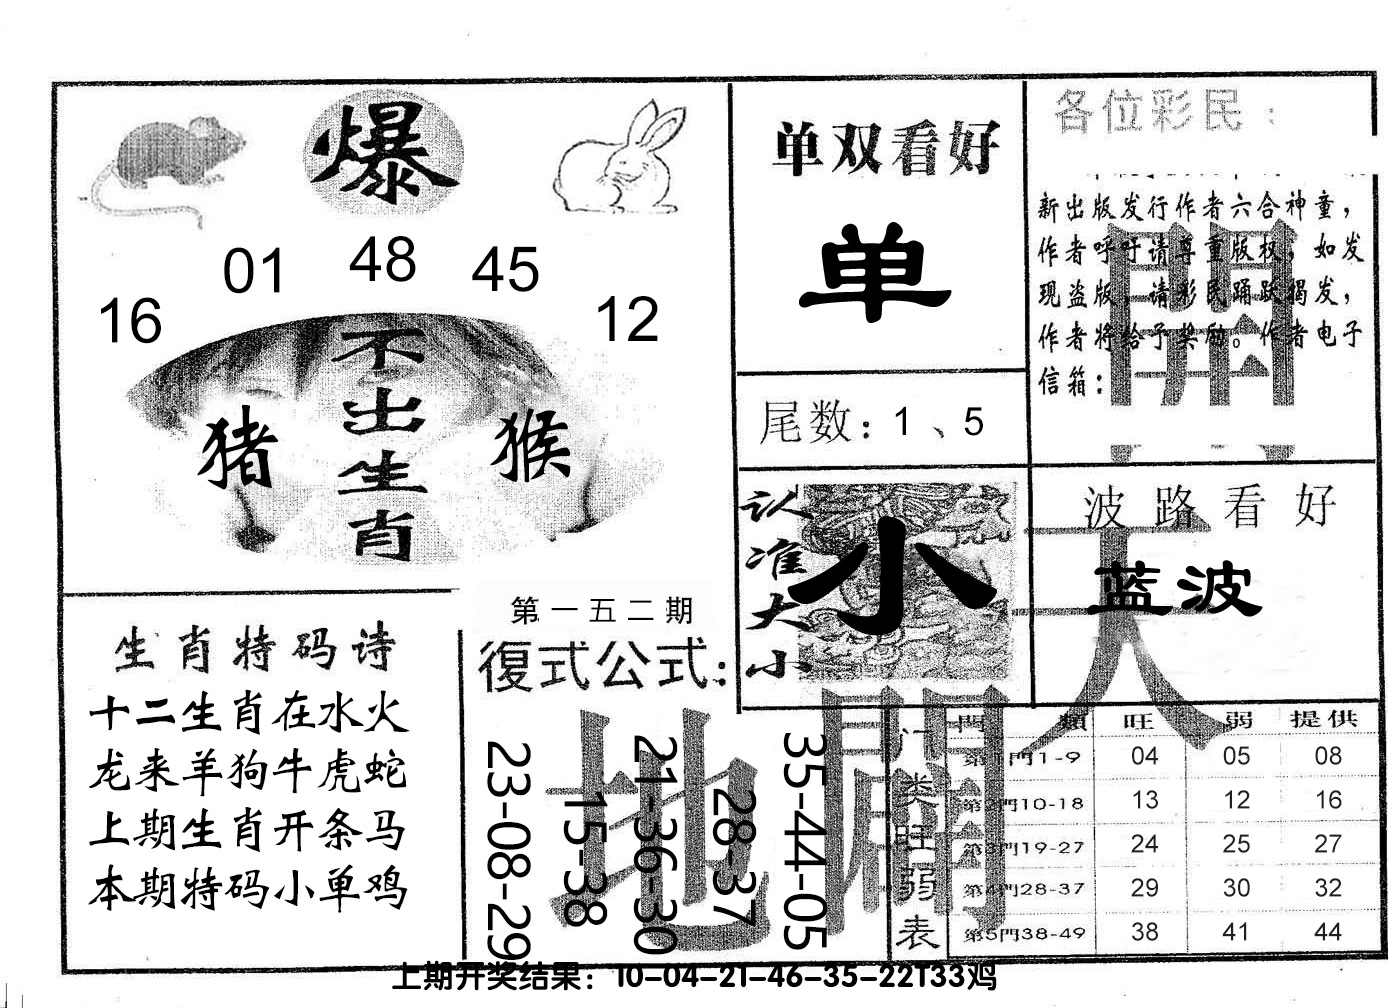 爆
01 48 45
16 12
不出生肖
猪 猴
单双看好
单
尾数：1、5
各位彩民：
新出版发行作者六合神童，
作者呼吁请尊重版权，如发
现盗版，请彩民踊跃揭发，
作者将给予奖励。作者电子
信箱：
認准大小
小
波路看好
蓝波
天
開
地
生肖特码诗
十二生肖在水火
龙来羊狗牛虎蛇
上期生肖开条马
本期特码小单鸡
第一五二期
復式公式：
23-08-29
15-38
21-36-30
28-37
35-44-05
门类旺弱表
門類 旺 弱 提供
第1門1-9 04 05 08
第2門10-18 13 12 16
第3門19-27 24 25 27
第4門28-37 29 30 32
第5門38-49 38 41 44
上期开奖结果：10-04-21-46-35-22T33鸡